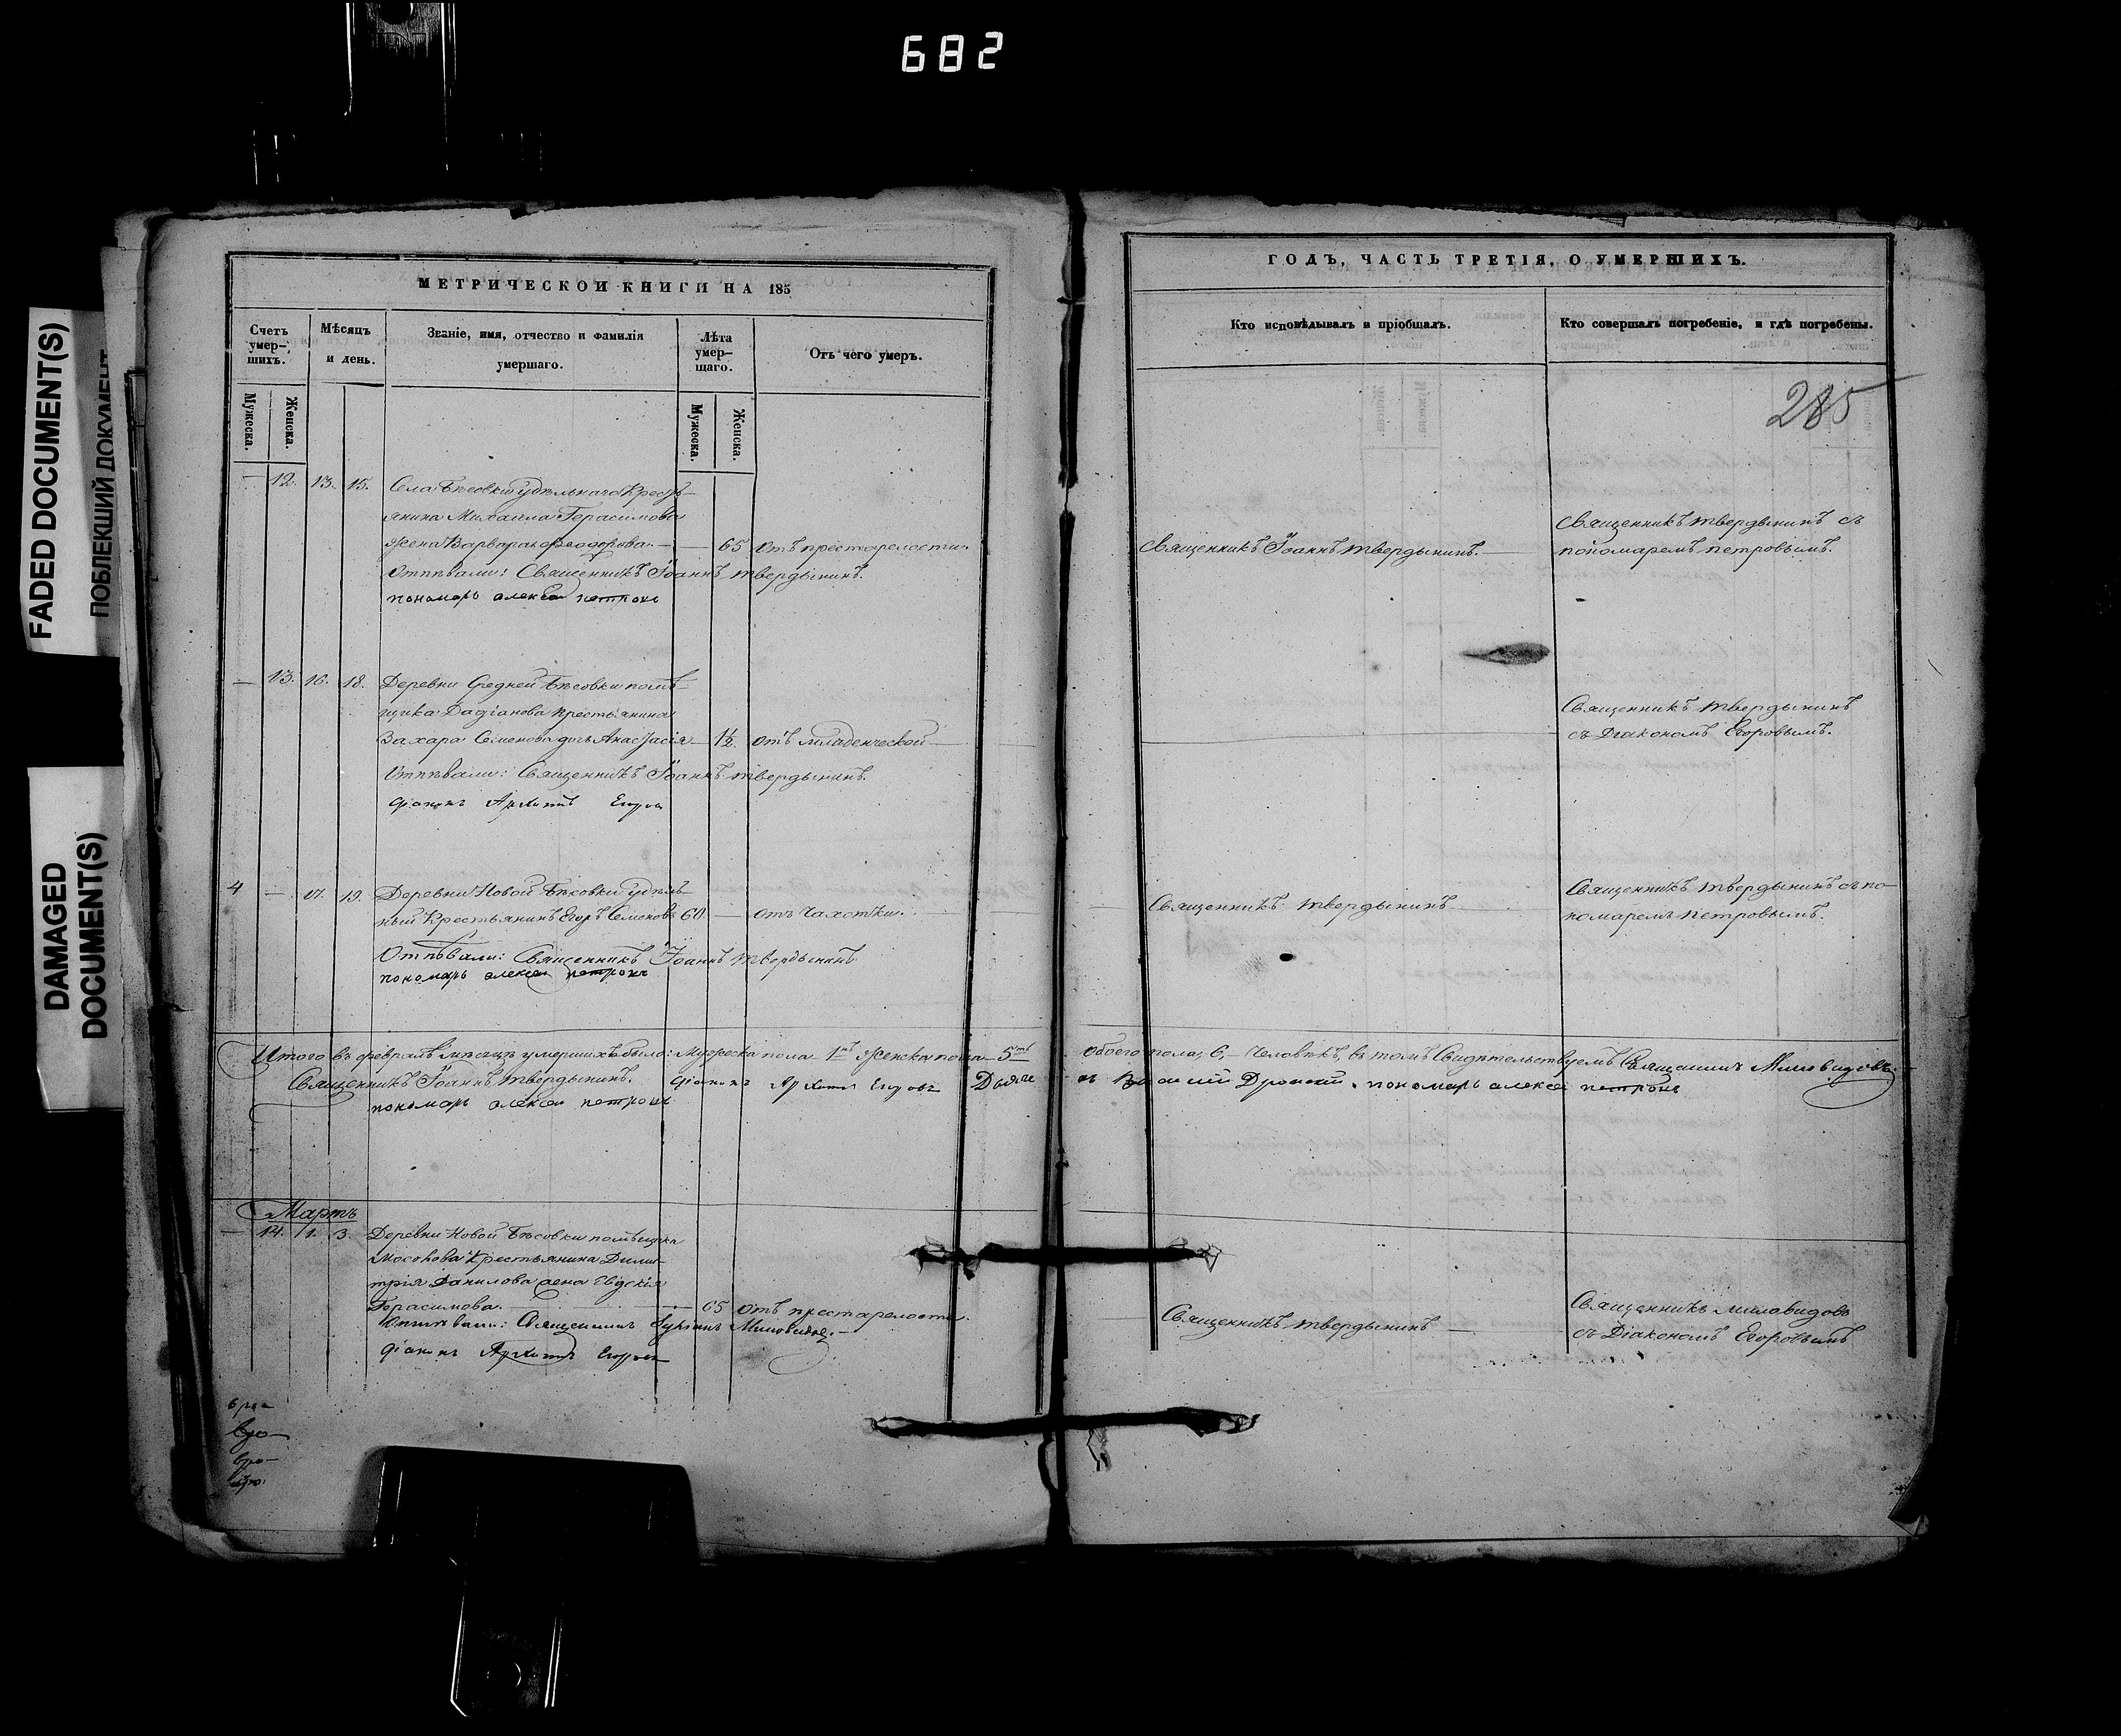 682
FADED DOCUMENT(S)
ПОБЛЕКШИЙ ДОКУМЕНТ
DAMAGED
DOCUMENT(S)
МЕТРИЧЕСКОЙ КНИГИ НА 185
Счетъ умер-шихъ.
Мужеска.
Женска.
Мѣсяцъ и день.
Званіе, имя, отчество и фамилія умершаго.
Лѣта умер-шаго.
Мужеска.
Женска.
Отъ чего умеръ.
ГОДЪ, ЧАСТЬ ТРЕТІЯ, О УМЕРШИХЪ.
Кто исповѣдывалъ и пріобщалъ.
Кто совершалъ погребеніе, и гдѣ погребены.
285
— 12. 13. 15. Села Бѣсовки удѣльнаго Кресть-
янина Михаила Герасимова
жена Варвара Феодорова. — 65 отъ престарелости.
Отпѣвали: Священникъ Іоаннъ Твердынинъ.
пономарь алексей петровъ
Священникъ Іоаннъ Твердынинъ.
Священникъ Твердынинъ съ
пономаремъ петровымъ.
— 13. 16. 18. Деревни Средней Бѣсовки помѣ-
щика Дадіанова крестьянина
Захара Семенова дочь Анастасія — 1½. отъ младенческой
Отпѣвали: Священникъ Іоаннъ Твердынинъ.
діаконъ Архипъ Егоровъ
Священникъ Твердынинъ
съ Діакономъ Егоровымъ.
4 — 17. 19. Деревни Новой Бѣсовки удѣль-
ный Крестьянинъ Егоръ Семеновъ 60. — отъ чахотки.
Отпѣвали: Священникъ Іоаннъ Твердынинъ
пономарь алексей петровъ
Священникъ Твердынинъ
Священникъ Твердынинъ съ по-
номаремъ петровымъ.
Итого въ февралѣ мѣсяцѣ умершихъ было: Мужеска пола 1нъ Женска пола 5ть обоего пола, 6, — Человѣкъ, въ томъ Свидѣтельствуемъ Священникъ Миловидовъ.
Священникъ Іоаннъ Твердынинъ. діаконъ Архипъ Егоровъ Дьяче
пономарь алексей петровъ
пономарь алексей петровъ
Мартъ
— 14. 1. 3. Деревни Новой Бѣсовки помѣщика
Крестьянина Дими-
трія Данилова жена
Герасимова. — 65 отъ престарелости.
Отпѣвали: Священникъ Миловидовъ.
діаконъ Архипъ Егоровъ
Священникъ Твердынинъ
Священникъ Миловидовъ
съ Діакономъ Егоровымъ